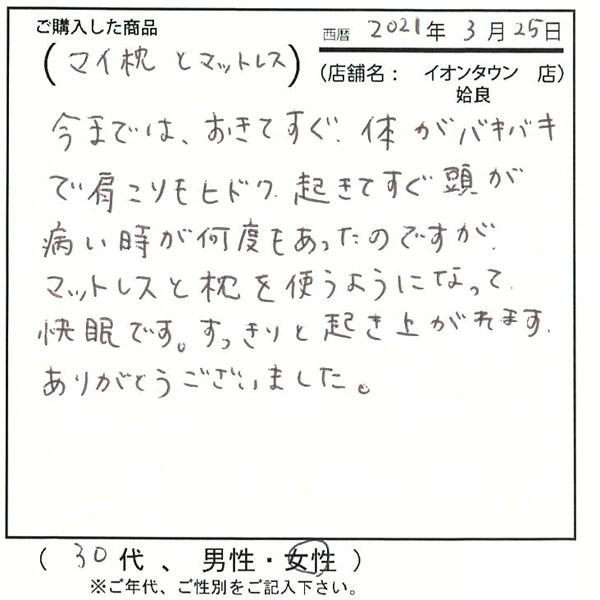 ご購入した商品
(マイ枕とマットレス)
西暦 2021年 3月 25日
(店舗名: イオンタウン 姶良 店)
今までは、おきてすぐ、体がバキバキ
で肩こりもヒドク、起きてすぐ頭が
病い時が何度もあったのですが、
マットレスと枕を使うようになって、
快眠です。すっきりと起き上がれます。
ありがとうございました。
(30代、男性・女性)
※ご年代、ご性別をご記入下さい。